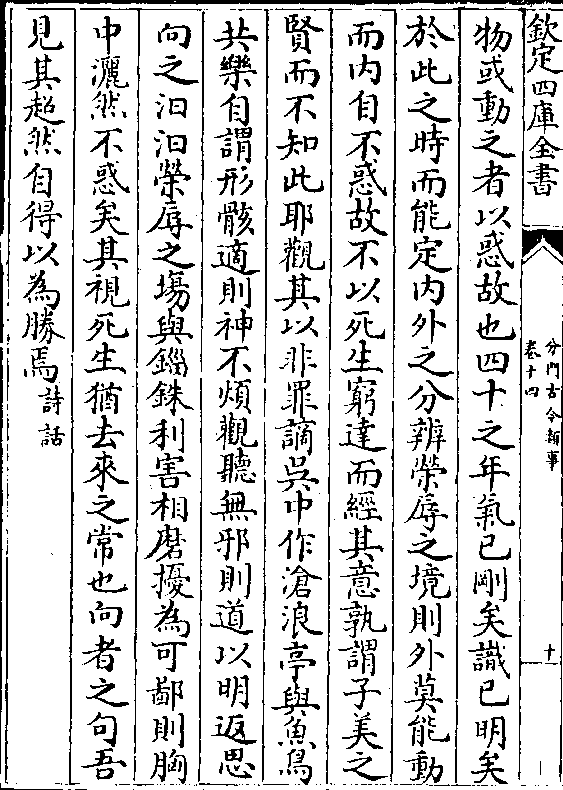 欽定四庫全書
分門古今類事
卷十四
十
物或動之者以惑故也四十之年氣已剛矣識已明矣
於此之時而能定內外之分辨榮辱之境則外莫能動
而內自不惑故不以死生窮達而經其意孰謂子美之
賢而不知此耶觀其以非罪謫吳中作滄浪亭與魚鳥
共樂自謂形骸適則神不煩觀聽無邪則道以明返思
向之汩汩榮辱之塲與錙銖利害相磨擾為可鄙則胸
中灑然不惑矣其視死生猶去來之常也向者之句吾
見其超然自得以為勝焉詩話